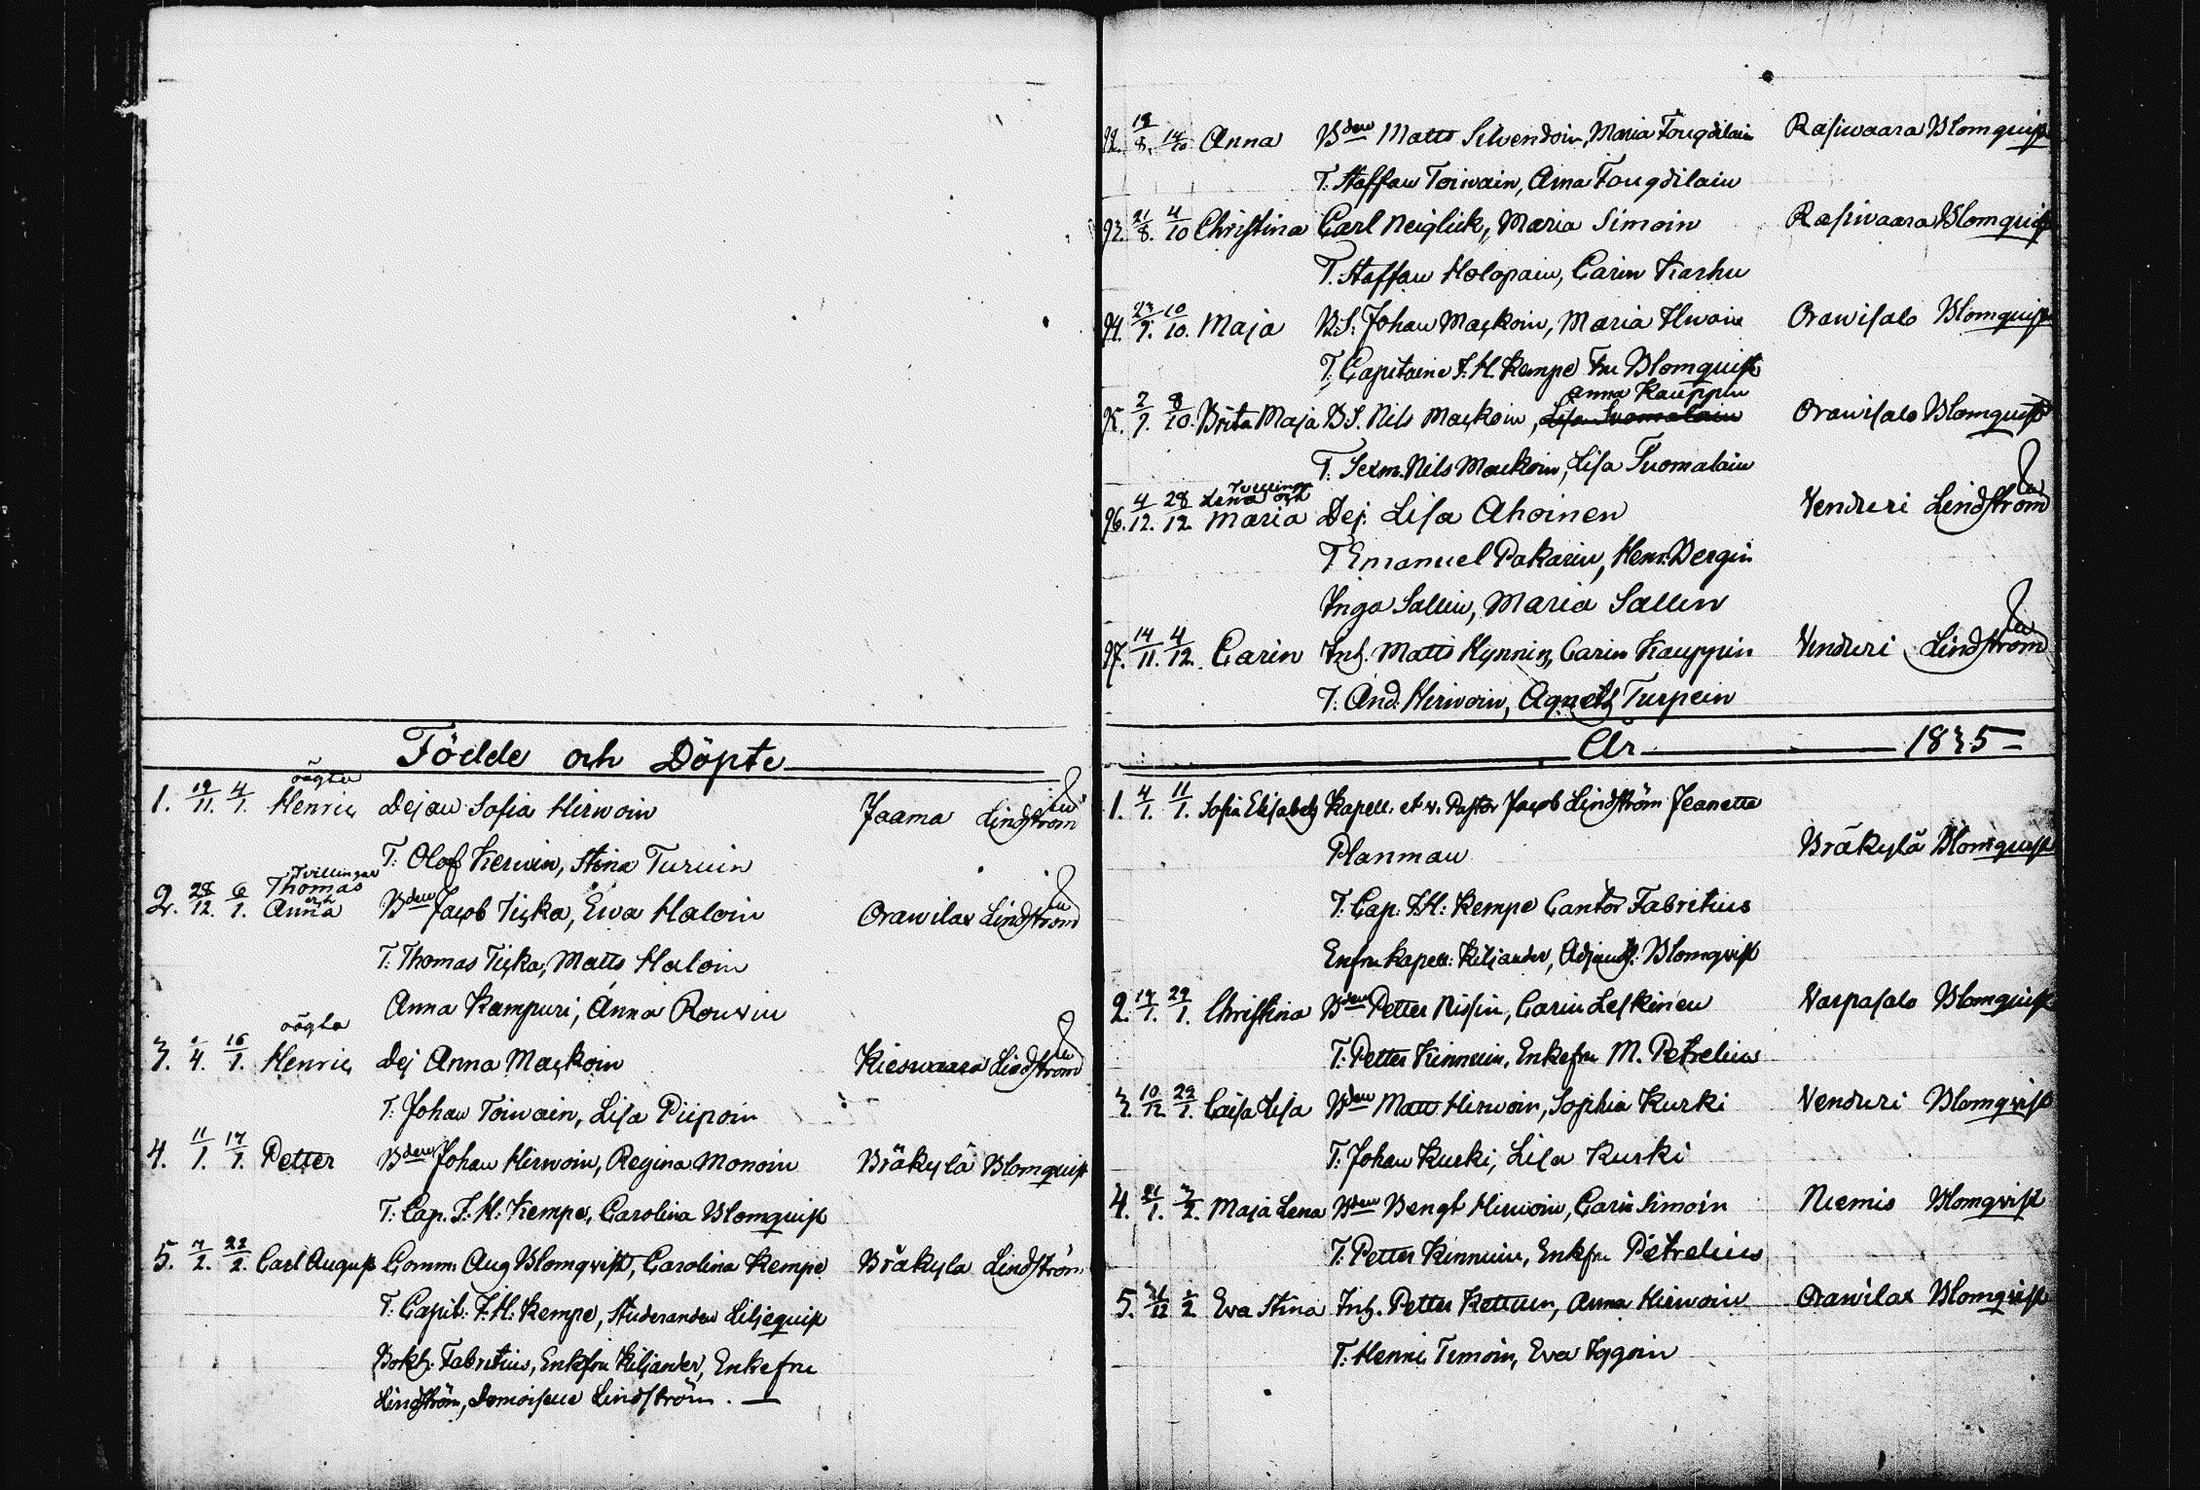 Födde och Döpte
1. 19/11. 4/1. oägta Henric Dejan Sofia Hirwoin Jaama Lindström
T: Olof Kerwin, Stina Turuin
2. 28/12. 6/1. Tvillingar Thomas och Anna Bden Jacob Ticka, Ewa Haloin Orawilax Lindström
T. Thomas Ticka, Matts Haloin
Anna Kampuri, Anna Rouvin
3. 4. 16/1. oägta Henric Dej Anna Mackoin Kieswaara Lindström
T. Johan Toiwain, Lisa Piipoin
4. 11/1. 17/1. Petter Bden Johan Hirwoin, Regina Monoin Bräkylä Blomquist
T: Cap. F. H. Kempe, Carolina Blomquist
5. 7/2. 22/2. Carl August Comm. Aug Blomqvist, Carolina Kempe Bräkyla Lindström
T. Capit: F. H: Kempe, Studeranden Liljequist
Bokh. Fabritius, Enkefru Kiljander, Enkefru
Lindström, Demoiselle Lindström. —
92. 19/8. 14/10 Anna Bden Matts Silvendoin, Maria Fougdilain Rasiwaara Blomquist
T. Staffan Toiwain, Anna Fougdilain
93. 21/8. 4/10 Christina Carl Neiglick, Maria Simoin Rasiwaara Blomquist
T. Staffan Holopain, Carin Karhu
94. 23/9. 10/10. Maja B.S. Johan Mackoin, Maria Ilwoin Orawisalo Blomquist
T. Capitaine F. H. Kempe Fru Blomquist
Anna Kauppin
95. 2/9. 8/10. Brita Maja B.S. Nils Mackoin, Lisa Suomalain Orawisalo Blomquist
T. Sexm. Nils Mackoin, Lisa Suomalain
96. 4/12. 28/12 Tvillingar Lena och Maria Dej. Lisa Ahoinen Venduri Lindström
T Emanuel Pakarin, Henr. Bergin
Inga Sallin, Maria Sallin
97. 14/11. 4/12. Carin Inh. Matts Hynnin, Carin Kauppin Venduri Lindström
T. And. Hirwoin, Agneta Turpein
År 1835
1. 4/1. 11/1. Sofia Elisabeth Kapell. et v. Pastor Jacob Lindström Jeanette
Planman Bräkylä Blomquist
T. Cap: F.H: Kempe Cantor Fabritius
Enfru Kapell: Kiljander, Adjunk: Blomqvist
2. 17/1. 29/1. Christina Bden Petter Nissin, Carin Leskinen Varpasalo Blomquist
T. Petter Kinnuin, Enkefru M. Petrelius
3. 10/12 29/1. Caisa Lisa Bden Matts Hirwoin, Sophia Kurki Venduri Blomqvist
T. Johan Kurki, Lisa Kurki
4. 21/1. 3/2. Maja Lena Bden Bengt Hirwoin, Carin Simoin Niemis Blomqvist
T. Petter Kinnuin, Enkfru Petrelius
5. 12 2 Eva Stina Inh. Petter Kettuin, Anna Hirwoin Orawilax Blomqvist
T. Henric Timoin, Eva Iggoin